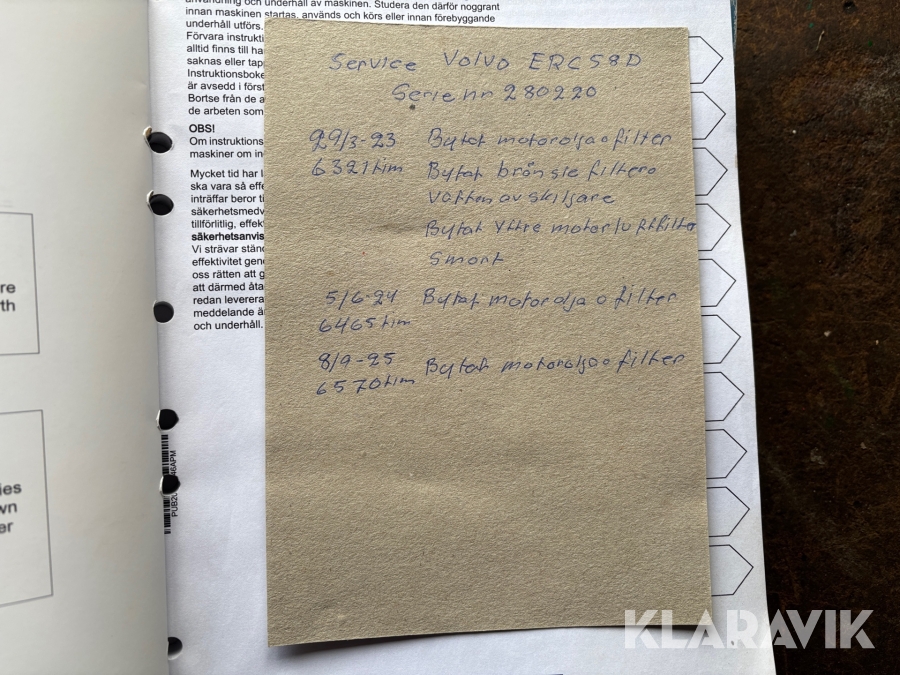 användning och underhåll av maskinen. Studera den därför noggrant
innan maskinen startas, används och körs eller innan förebyggande
underhåll utförs.
Förvara instrukti
alltid finns till ha
saknas eller tap
Instruktionsboke
är avsedd i först
Bortse från de a
de arbeten som
OBS!
Om instruktions
maskiner om in
Mycket tid har l
ska vara så effe
inträffar beror ti
säkerhetsmedv
tillförlitlig, effekt
säkerhetsanvis
Vi strävar ständ
effektivitet gen
oss rätten att g
att därmed åta
redan leverera
meddelande ä
och underhåll.
Service Volvo ERC58D
Serie nr 280220
29/3-23 Bytat motorolja o filter
6321tim Bytat bränsle filter o
Vatten avskiljare
Bytat Yttre motorluftfilter
Smort
5/6-24 Bytat motorolja o filter
6465tim
8/9-25 Bytat motorolja o filter
6570tim
re
th
ies
wn
er
46APM
KLARAVIK